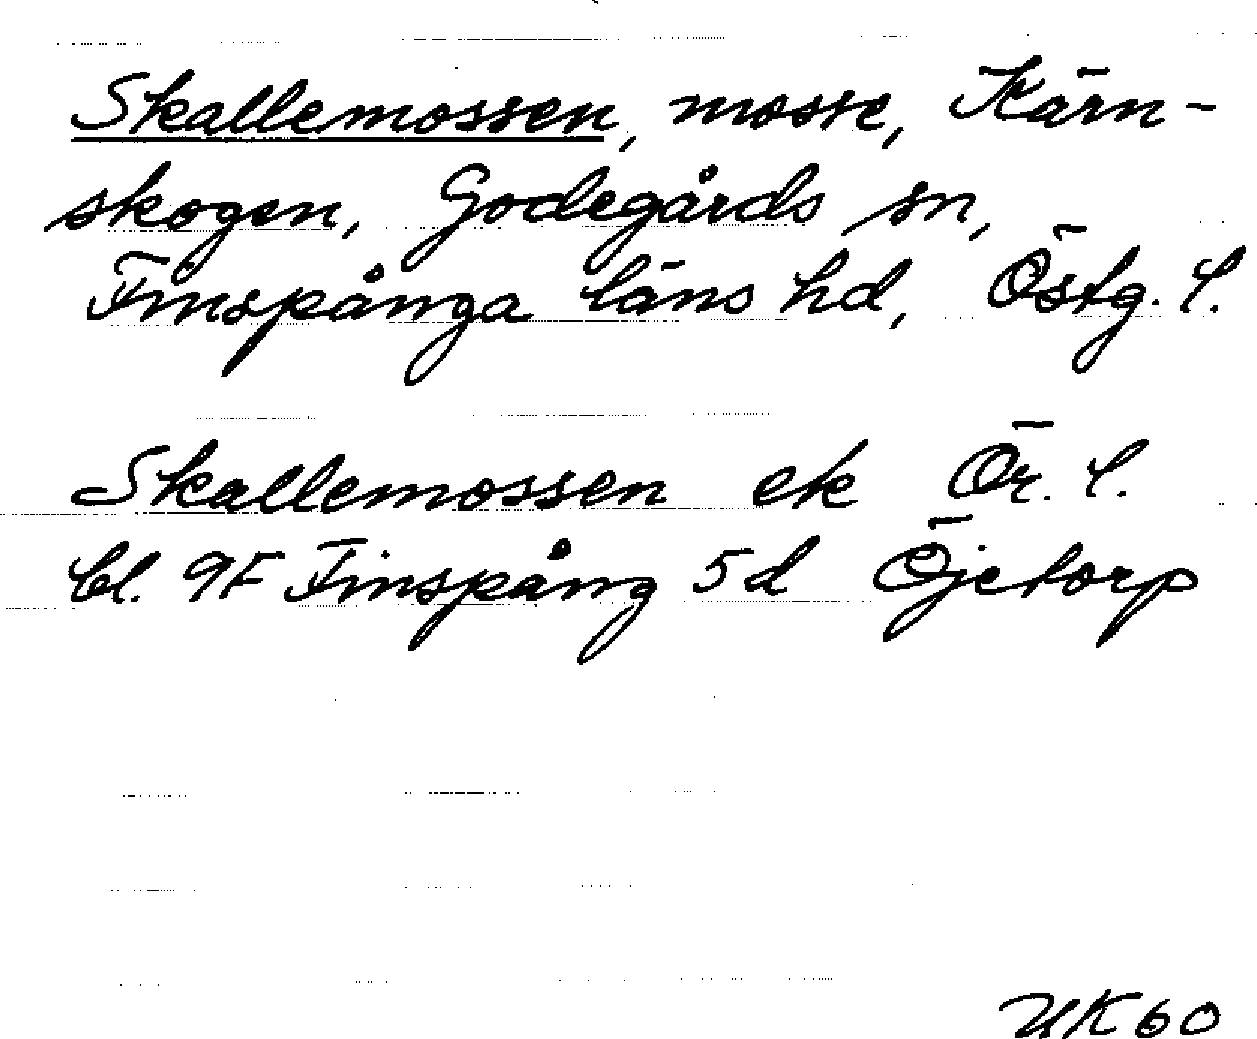 Skallemossen, mosse, Kärn-
skogen, Godegårds sn,
Finspånga läns hd, Östg. l.
Skallemossen ek Ör. l.
bl. 9F Finspång 5d Öjetorp
UK60